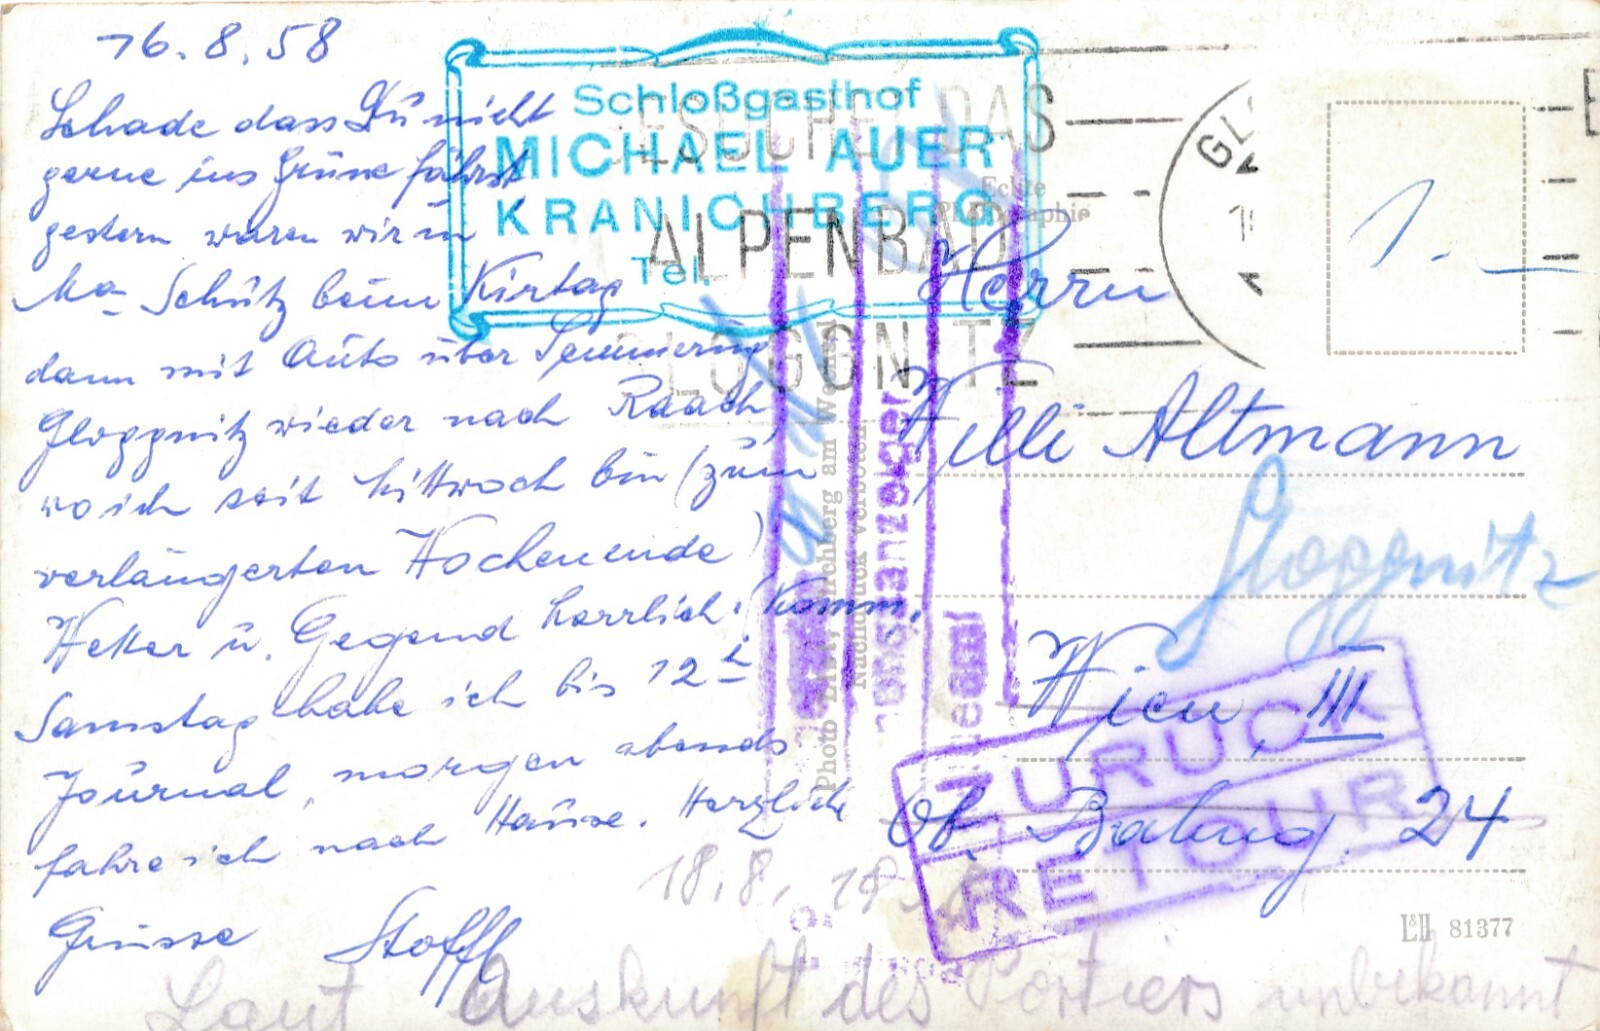 16.8.58
Schade dass Du nicht
gerne ins Grüne fährst
gestern waren wir in
Ma- Schutz beim Kirtag
dann mit Auto über Semmering
Gloggnitz wieder nach Raach
wo ich seit Mittwoch bin (zum
verlängerten Wochenende)
Wetter u. Gegend herrlich! Komm.
Samstag habe ich bis 12h
Journal, morgen abends
fahre ich nach Hause. Herzliche
Grüsse Stoffl
Schloßgasthof
MICHAEL AUER
KRANICHBERG
Tel.
BESUCHET DAS
ALPENBAD
GLOGGNITZ
GL
Echte
Photographie
1.-
Herrn
Willi Altmann
Gloggnitz
Wien, III
Ob. Bahng. 24
ZURÜCK
RETOUR
Nachdruck verboten
18.8.
L&H 81377
Laut Auskunft des Portiers unbekannt